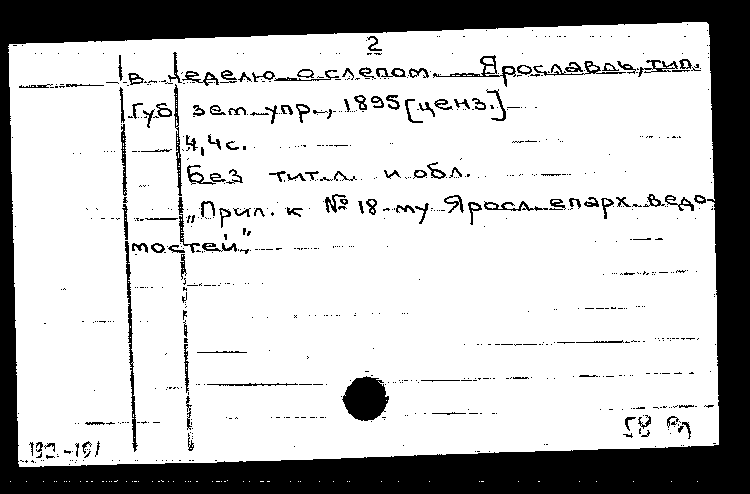 2
в неделю о слепом. Ярославль, тип.
Губ. зем. упр., 1895 [ценз.]
4, 4 с.
Без тит. л. и обл.
„Прил. к № 18-му Яросл. епарх. ведо-
мостей".
58